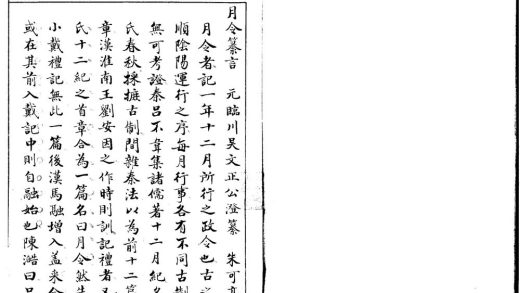 月令纂言　元臨川吳文正公澄纂　朱可亭
月令者記一年十二月所行之政令也古之
順陰陽運行之序每月行事各有不同古制
無可考證秦呂不韋集諸儒著十二月紀名
氏春秋採摭古制間雜秦法以為前十二篇
章漢淮南王劉安因之作時則訓記禮者又
氏十二紀之首章合為一篇名曰月令然
小戴禮記無此一篇後漢馬融增入蓋采合
或在其前入戴記中則自融始也陳澔曰呂